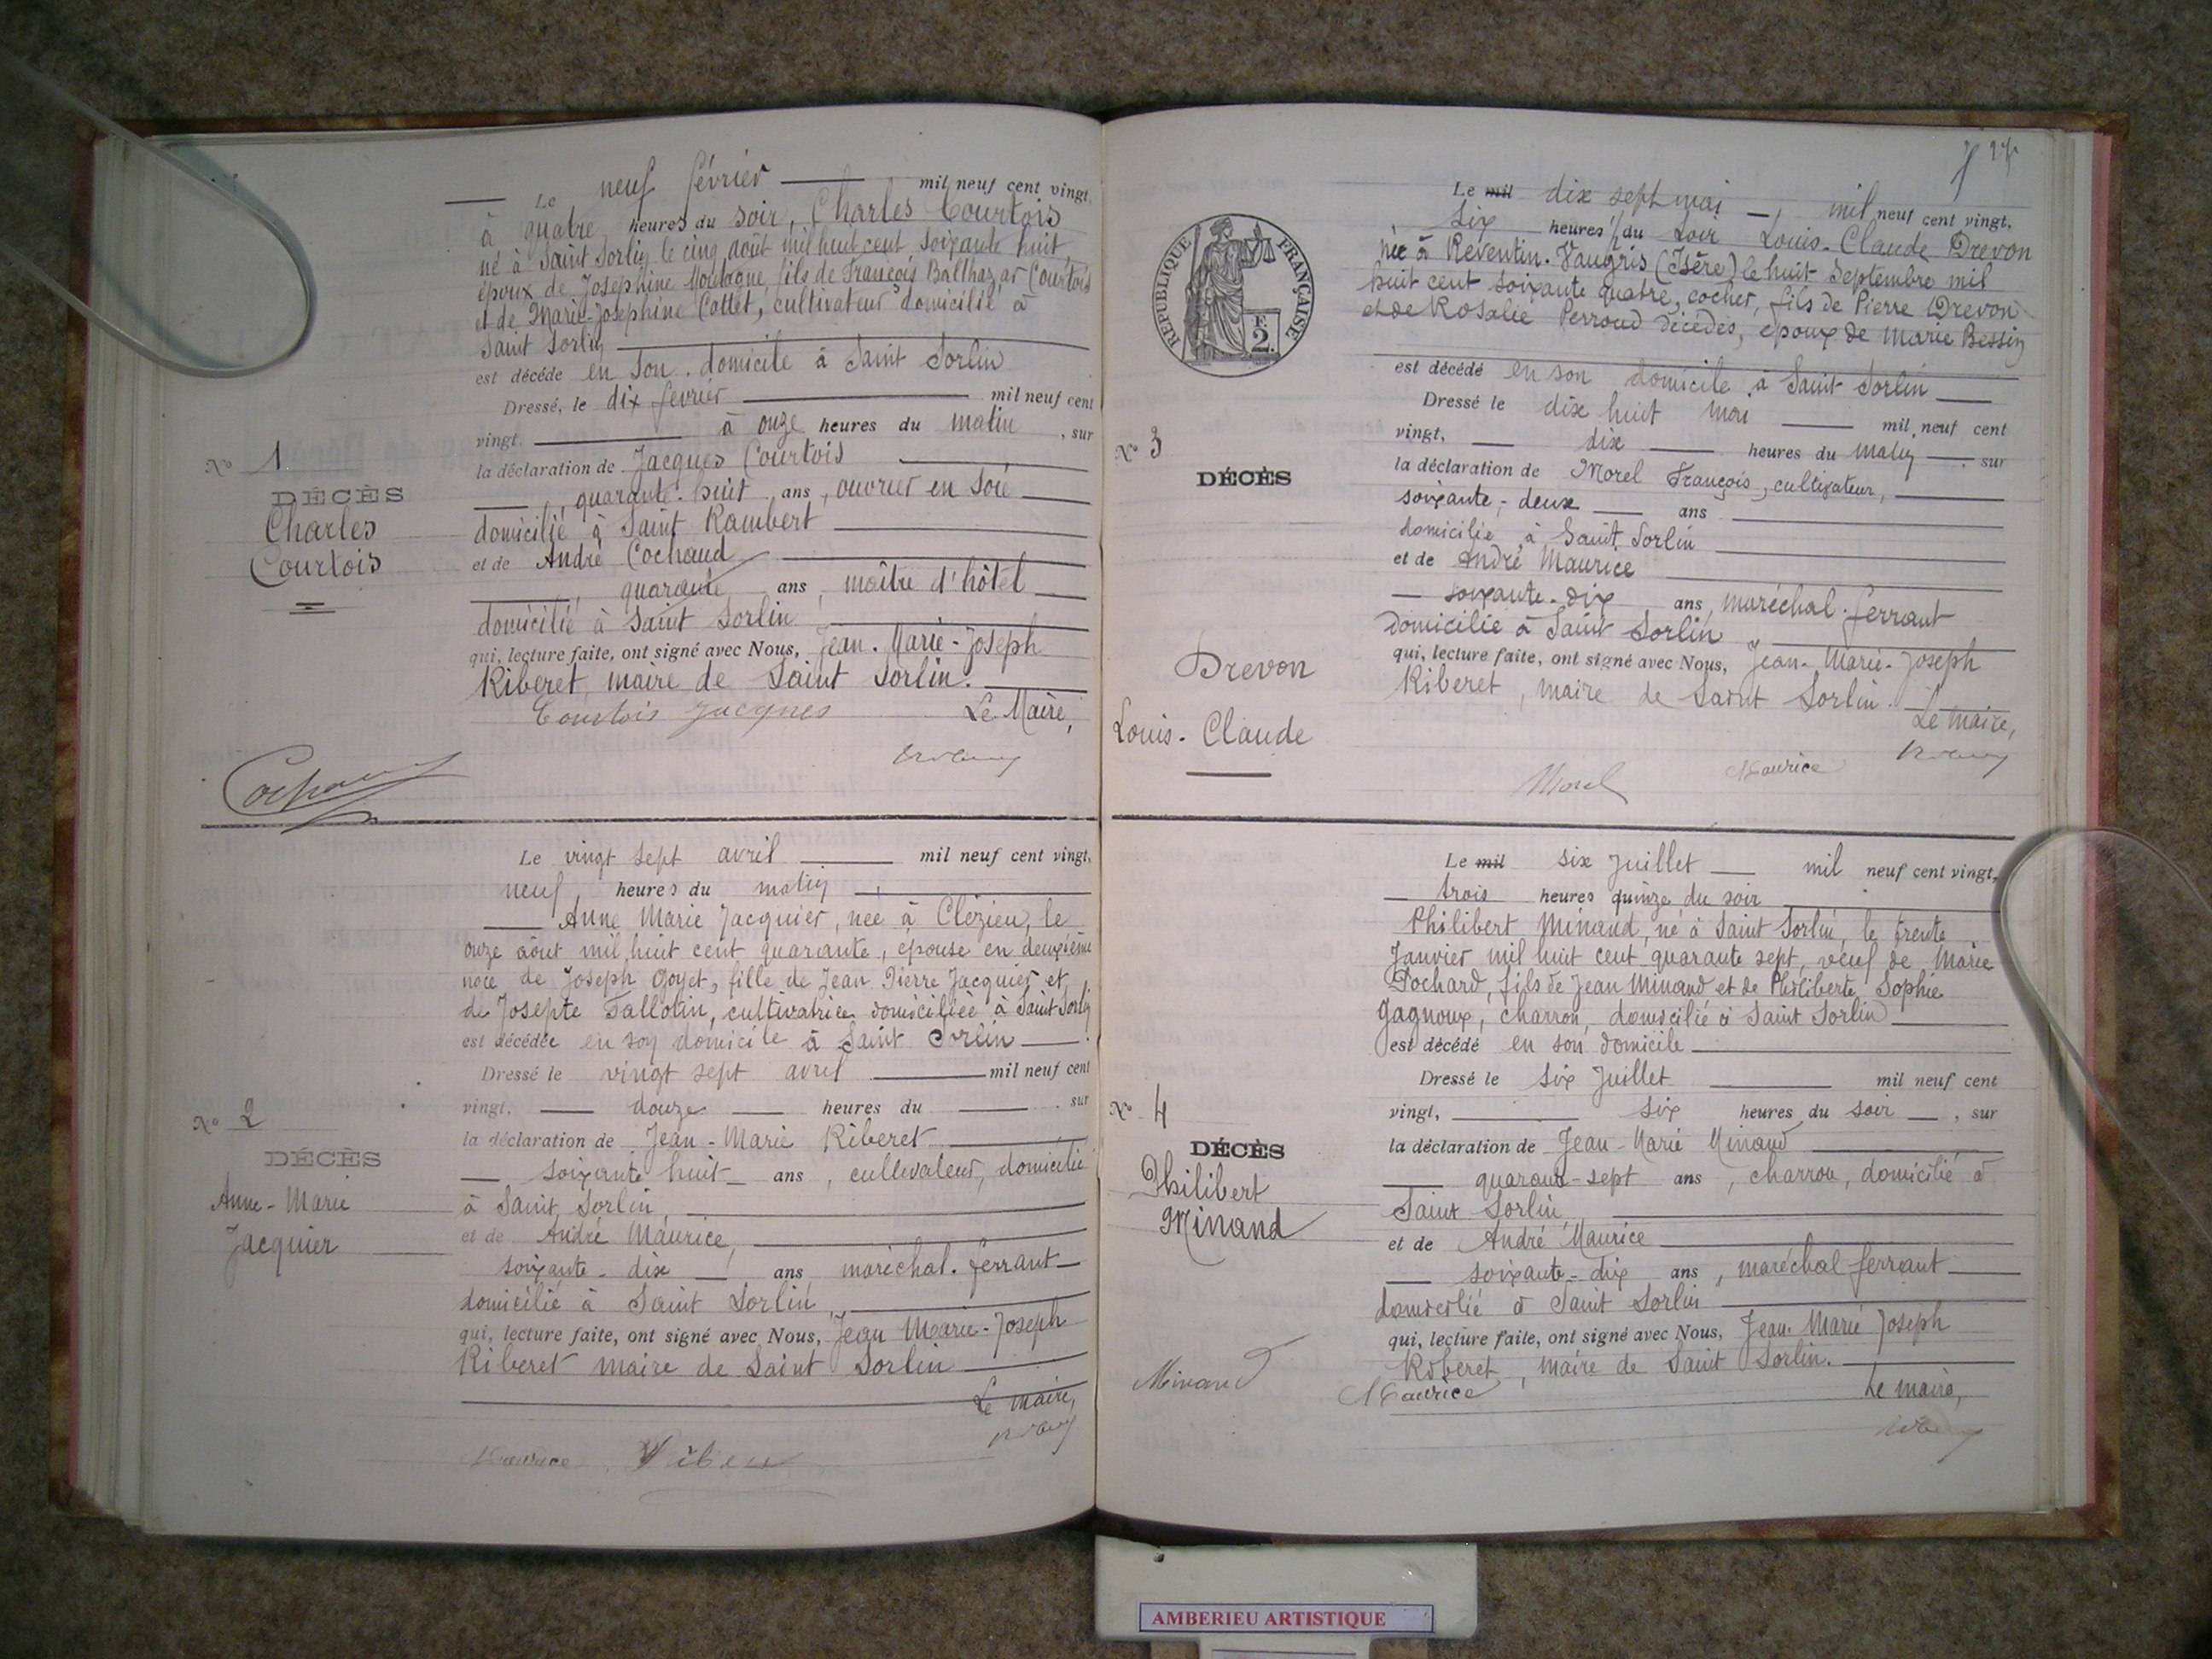 Le neuf février mil neuf cent vingt,
à quatre heures du soir, Charles Courtois
né à Saint Sorlin le cinq août mil huit cent soixante huit,
époux de Joséphine Montagne, fils de François Balthazar Courtois
et de Marie-Joséphine Collet, cultivateur domicilié à
Saint Sorlin
est décédé en son domicile à Saint Sorlin
Dressé, le dix février mil neuf cent
vingt. à onze heures du matin, sur
la déclaration de Jacques Courtois
quarante-huit ans, ouvrier en soie
domicilié à Saint Rambert
et de André Cochaud
quarante ans, maître d'hôtel
domicilié à Saint Sorlin
qui, lecture faite, ont signé avec Nous, Jean-Marie-Joseph
Riberet, maire de Saint Sorlin.
Courtois Jacques Le Maire,
No 1
DÉCÈS
Charles
Courtois
Le vingt sept avril mil neuf cent vingt,
neuf, heures du matin,
Anne Marie Jacquier, née à Clézieu, le
onze août mil huit cent quarante, épouse en deuxième
noce de Joseph Goyet, fille de Jean Pierre Jacquier et
de Josepte Tallotin, cultivatrice domiciliée à Saint Sorlin
est décédée en son domicile à Saint Sorlin
Dressé le vingt sept avril mil neuf cent
vingt. douze heures du , sur
la déclaration de Jean-Marie Riberet
soixante huit ans, cultivateur, domicilié
à Saint Sorlin,
et de André Maurice,
soixante-dix ans maréchal-ferrant
domicilié à Saint Sorlin,
qui, lecture faite, ont signé avec Nous, Jean Marie-Joseph
Riberet maire de Saint Sorlin
Le maire,
Maurice
No 2
DÉCÈS
Anne-Marie
Jacquier
Le mil dix sept mai, mil neuf cent vingt,
six heures 1/2 du soir Louis-Claude Drevon
née à Reventin-Vaugris (Isère) le huit Septembre mil
huit cent soixante quatre, cocher, fils de Pierre Drevon
et de Rosalie Perroud décédés, époux de Marie Bessin
est décédé en son domicile à Saint Sorlin
Dressé le dix huit mai mil neuf cent
vingt, dix heures du matin, sur
la déclaration de Morel François, cultivateur,
soixante-deux ans
domicilié à Saint Sorlin
et de André Maurice
soixante-dix ans, maréchal-ferrant
domicilié à Saint Sorlin
qui, lecture faite, ont signé avec Nous, Jean-Marie-Joseph
Riberet, maire de Saint Sorlin.
Le maire,
Morel Maurice
RÉPUBLIQUE FRANÇAISE
F.
2.
No 3
DÉCÈS
Drevon
Louis-Claude
Le mil six Juillet mil neuf cent vingt,
trois heures quinze du soir
Philibert Minand, né à Saint Sorlin, le trente
Janvier mil huit cent quarante sept, veuf de Marie
Pochard, fils de Jean Minand et de Philiberte Sophie
Gagnoux, charron, domicilié à Saint Sorlin
est décédé en son domicile
Dressé le six Juillet mil neuf cent
vingt, six heures du soir, sur
la déclaration de Jean-Marie Minand
quarante-sept ans, charron, domicilié à
Saint Sorlin,
et de André Maurice
soixante-dix ans, maréchal ferrant
domicilié à Saint Sorlin
qui, lecture faite, ont signé avec Nous, Jean-Marie Joseph
Riberet, maire de Saint Sorlin.
Minand Maurice Le maire,
No 4
DÉCÈS
Philibert
Minand
AMBERIEU ARTISTIQUE